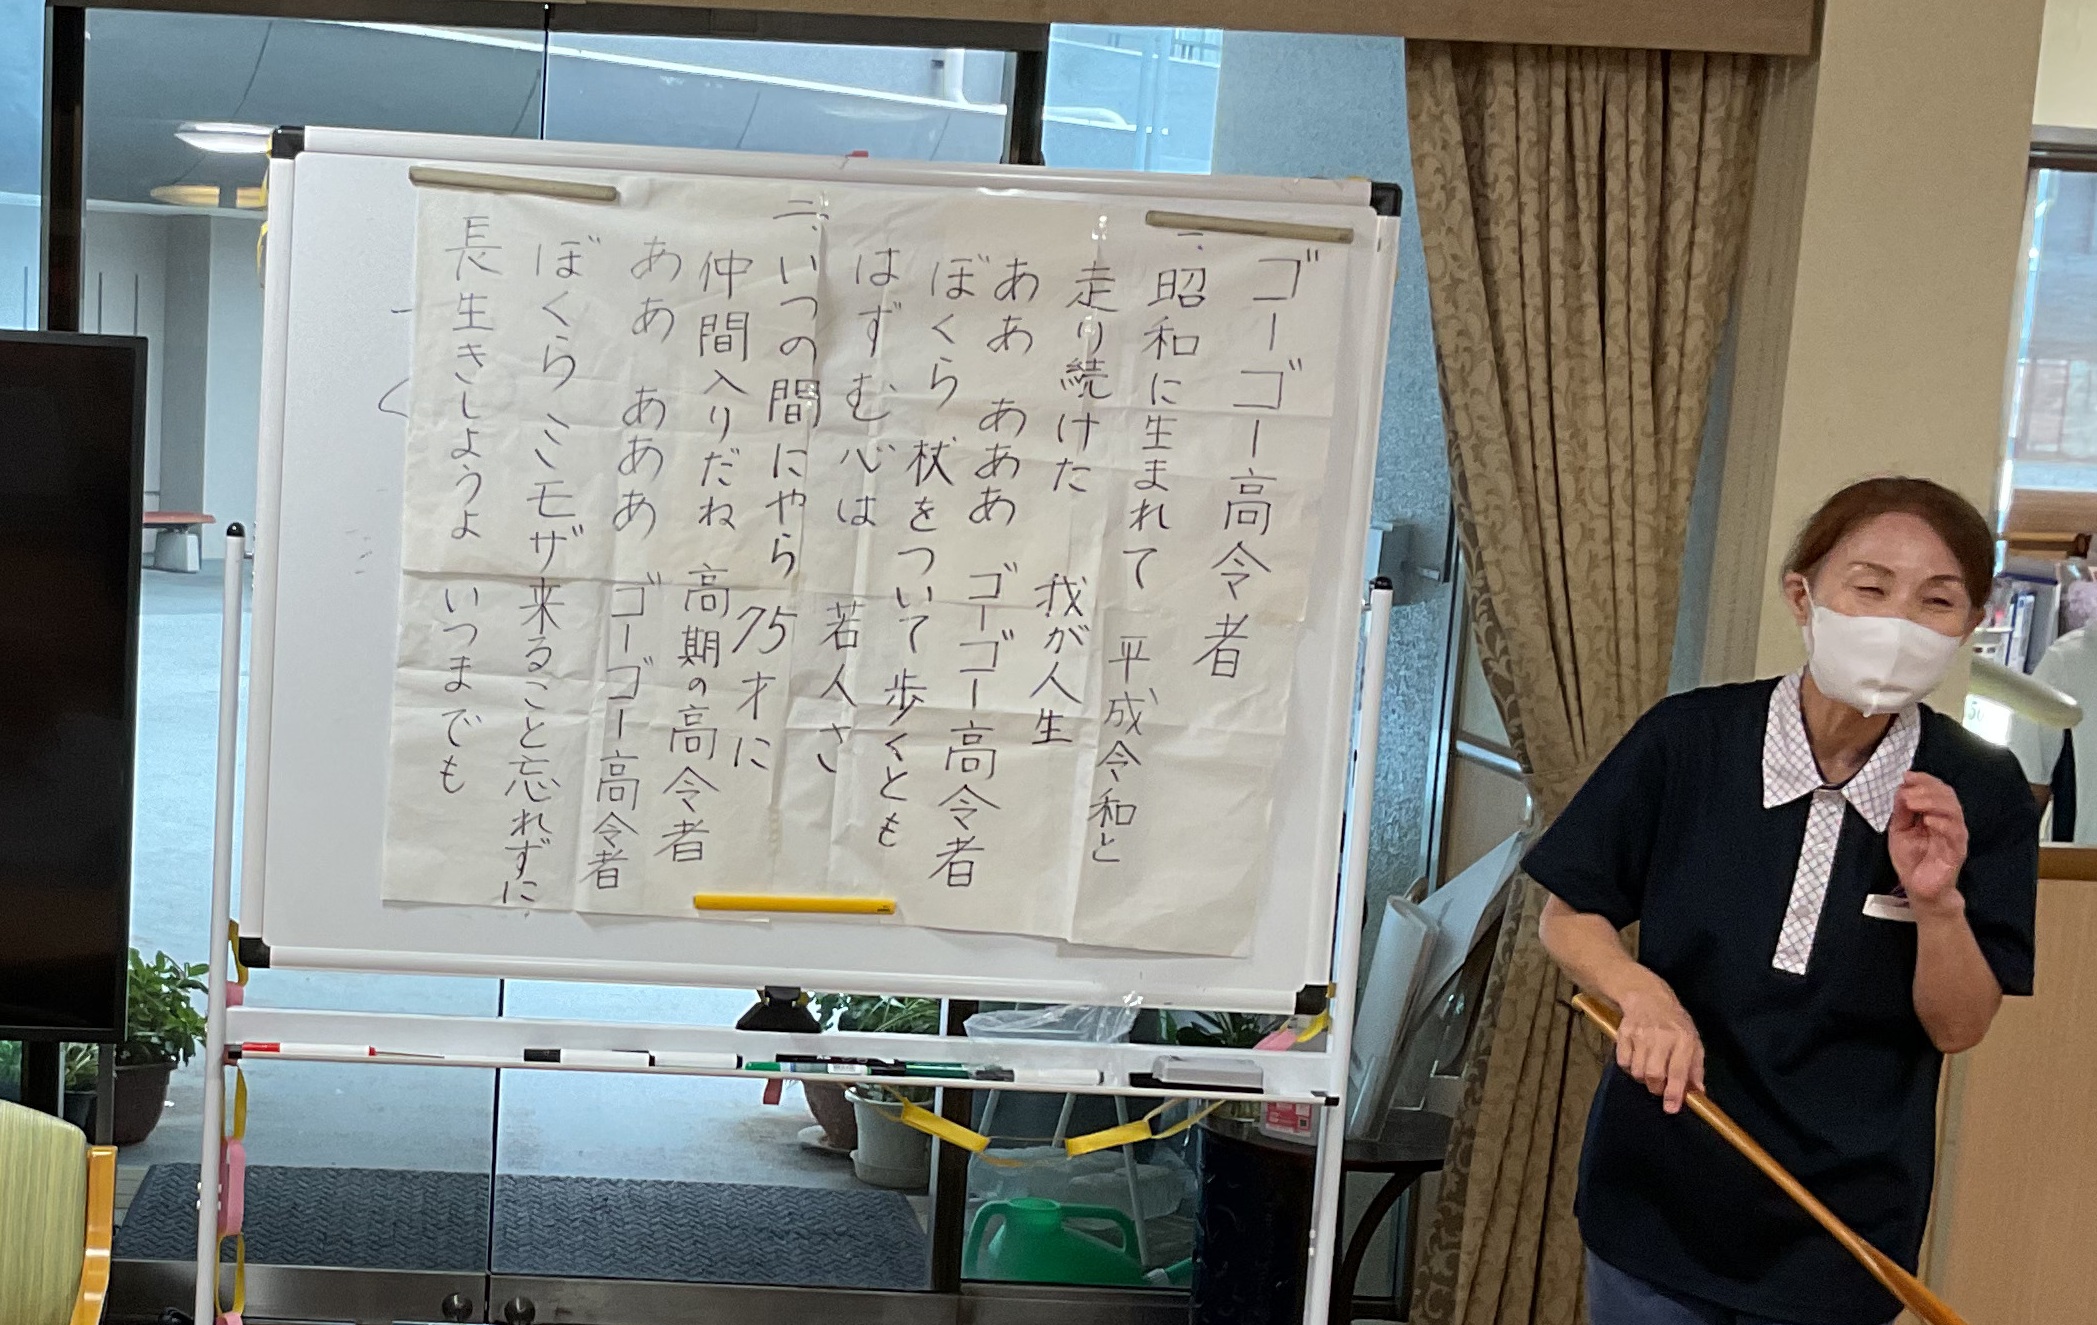 ゴーゴー高令者
一、昭和に生まれて 平成令和と
走り続けた 我が人生
ああ あああ ゴーゴー高令者
ぼくら 杖をついて歩くとも
はずむ心は 若人さ
二、いつの間にやら 75才に
仲間入りだね 高期の高令者
ああ あああ ゴーゴー高令者
ぼくら こモザ来ること忘れずに
長生きしようよ いつまでも